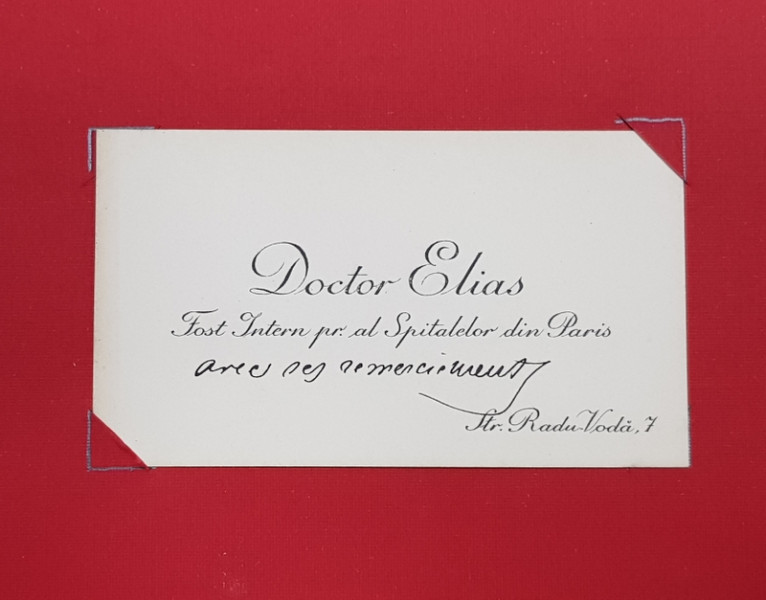 Doctor Elias
Fost Intern pr. al Spitalelor din Paris
avec ses remerciements
Str. Radu-Vodă, 7